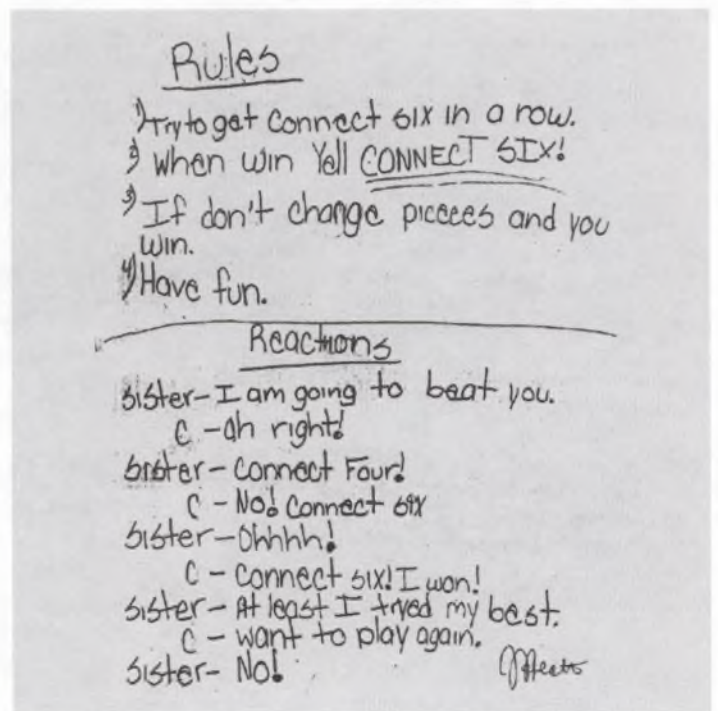 Rules
1) Try to get connect six in a row.
2) When win Yell CONNECT SIX!
3) If don't change piceces and you
win.
4) Have fun.
Reactions
Sister - I am going to beat you.
C - Oh right!
Sister - Connect Four!
C - No! Connect six
Sister - Ohhhh!
C - Connect six! I won!
Sister - At least I tryed my best.
C - want to play again.
Sister - No!